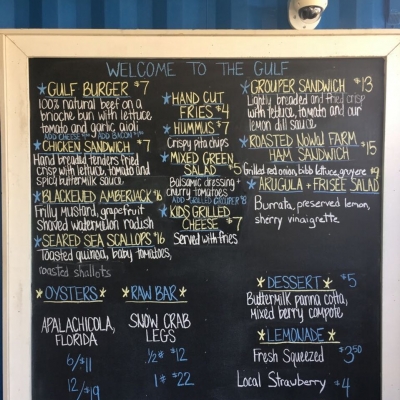 WELCOME TO THE GULF
GULF BURGER $7
100% natural beef on a
brioche bun with lettuce
tomato and garlic aioli
ADD CHEESE ADD BACON
CHICKEN SANDWICH $7
Hand breaded tenders fried
crisp with lettuce, tomato and
spicy buttermilk sauce
BLACKENED AMBERJACK $16
Frilly mustard, grapefruit
shaved watermelon radish
SEARED SEA SCALLOPS $16
Toasted quinoa, baby tomatoes,
roasted shallots
HAND CUT
FRIES $4
HUMMUS $7
Crispy pita chips
MIXED GREEN
SALAD $5
Balsamic dressing +
curry tomatoes
ADD GRILLED GROUPER $8
KIDS GRILLED
CHEESE $7
Served with fries
GROUPER SANDWICH $13
Lightly breaded and fried crisp
with lettuce, tomato and our
lemon dill sauce
ROASTED NIMAN FARM
HAM SANDWICH $15
Grilled red onion, bibb lettuce, gruyere
ARUGULA + FRISÉE SALAD $9
Burrata, preserved lemon,
sherry vinaigrette
OYSTERS
APALACHICOLA,
FLORIDA
6/$11
12/$19
RAW BAR
SNOW CRAB
LEGS
½# $12
1# $22
DESSERT $5
Buttermilk panna cotta,
mixed berry compote
LEMONADE
Fresh Squeezed $3.50
Local Strawberry $4